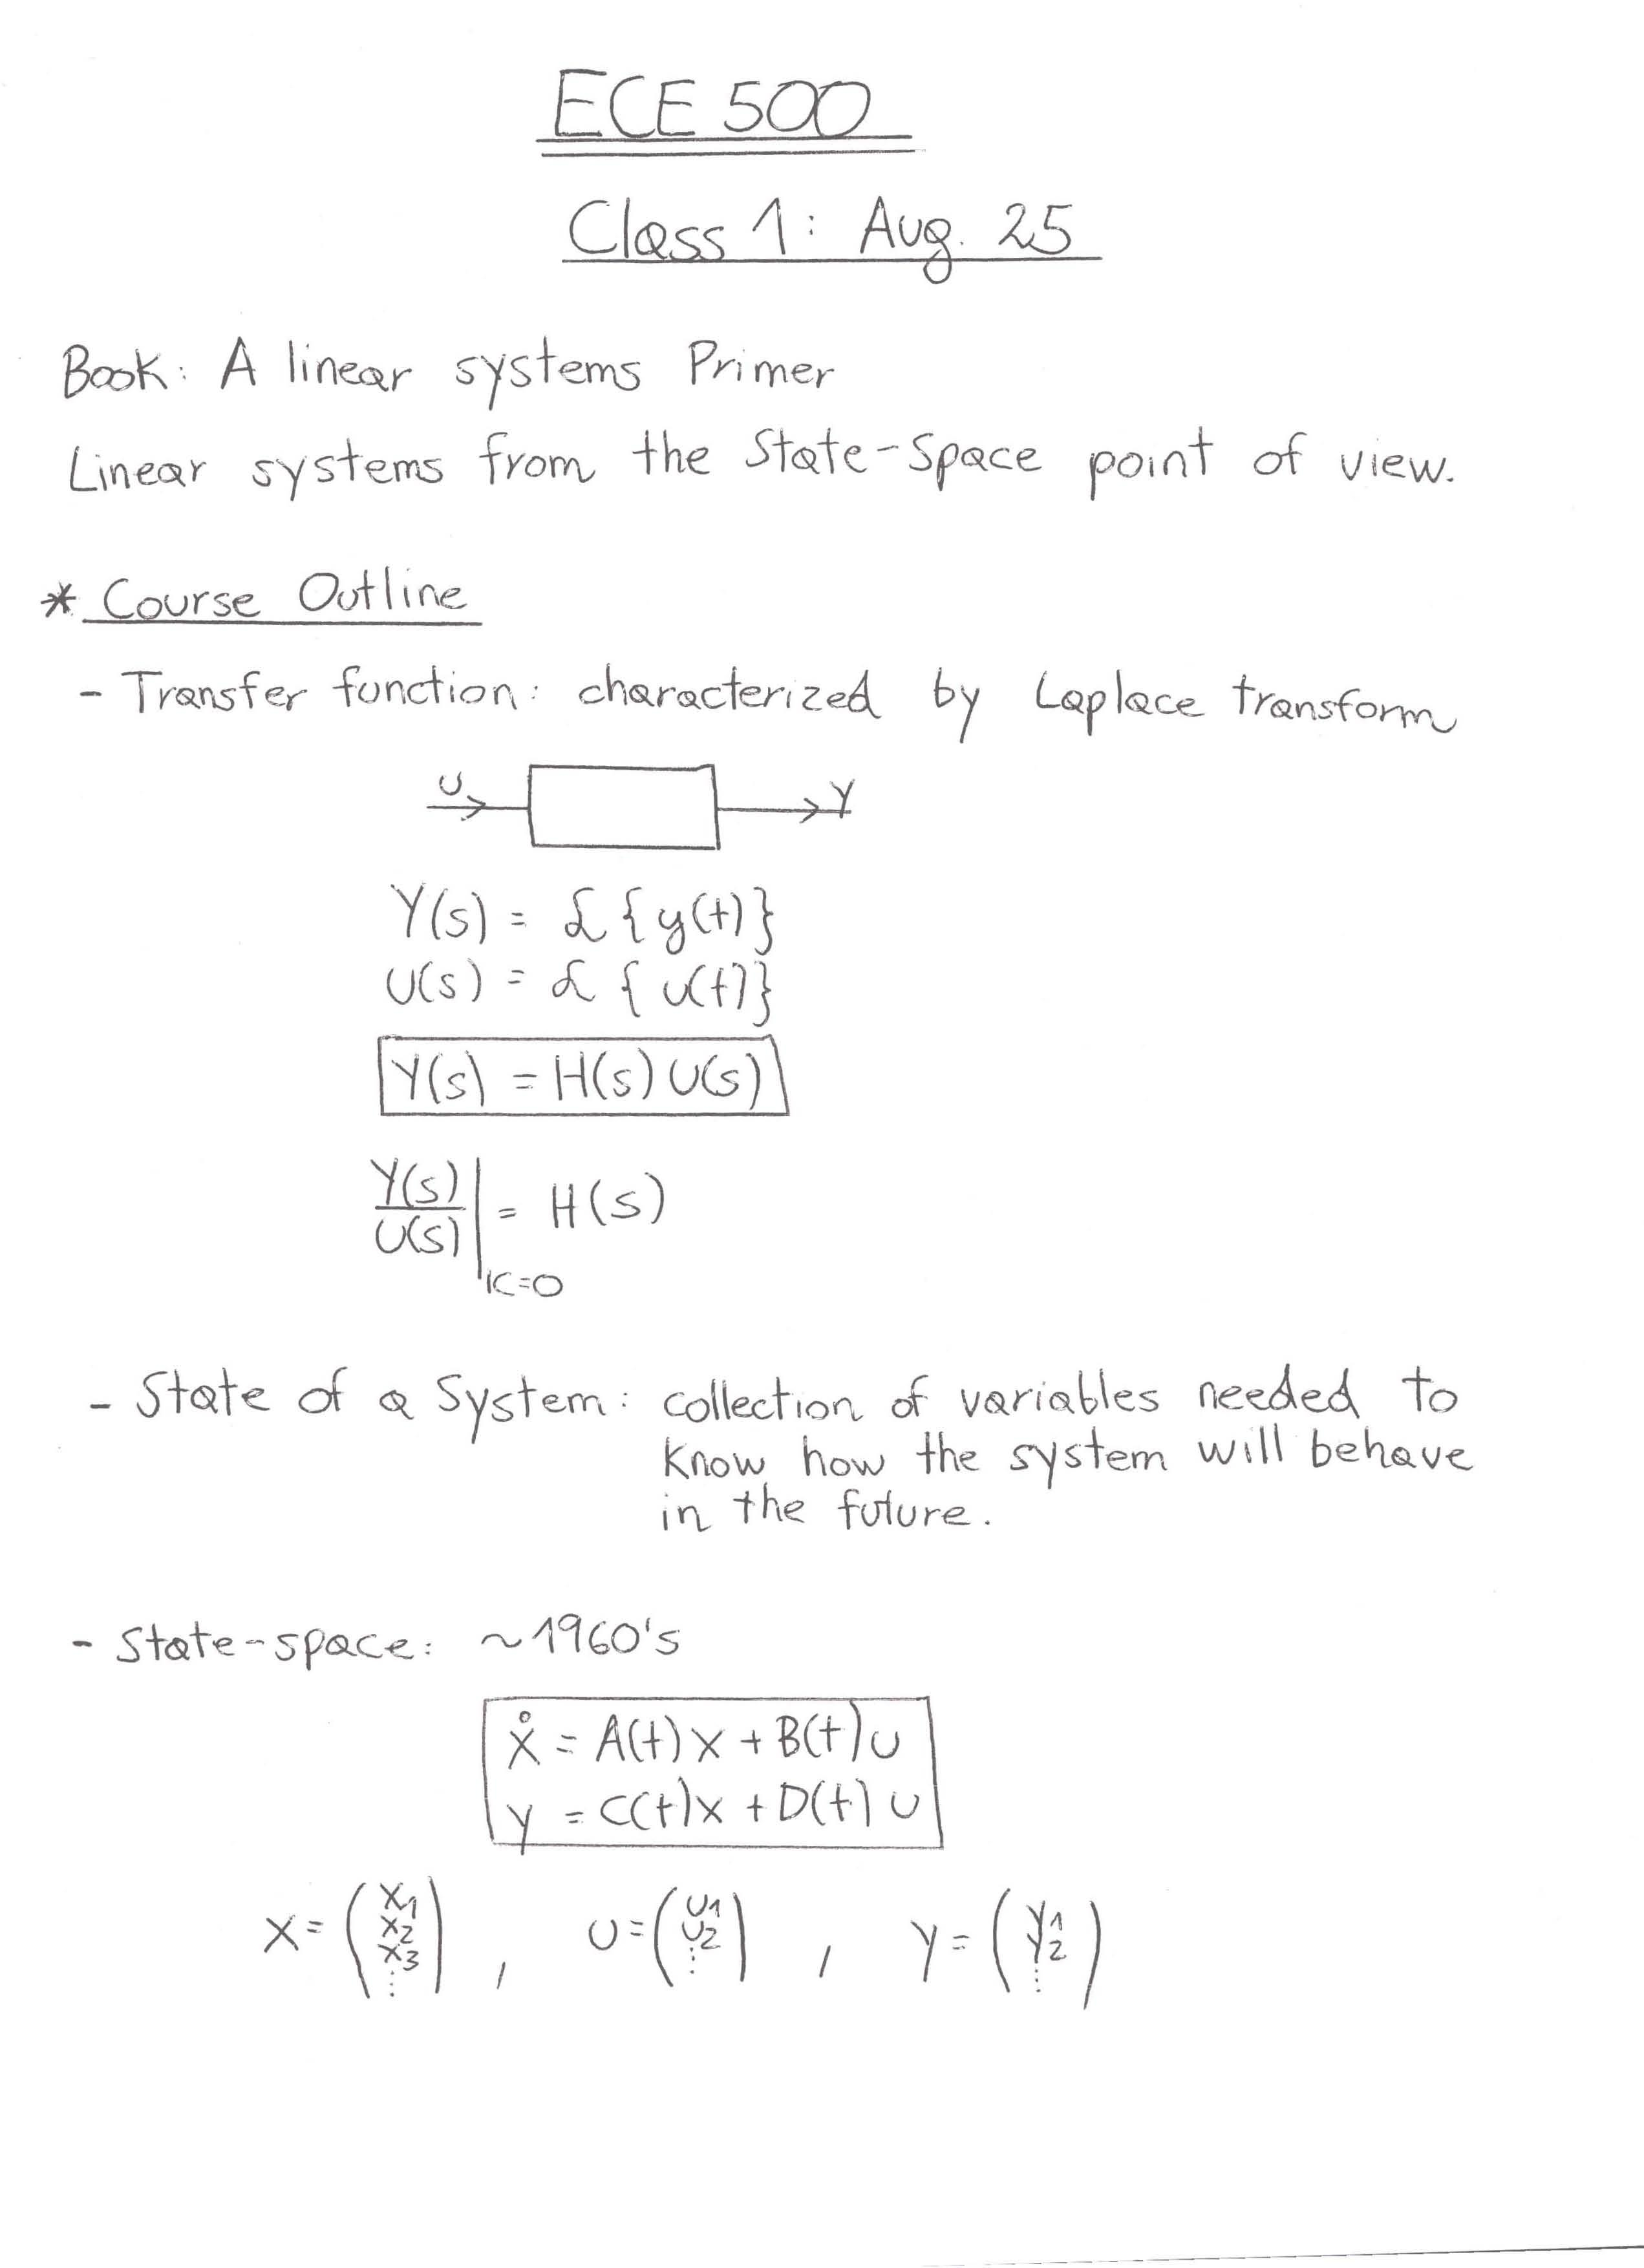 ECE 500
Class 1: Aug. 25
Book: A linear systems Primer
Linear systems from the State-Space point of view.
* Course Outline
- Transfer function: characterized by Laplace transform
U Y
Y(s) = ℒ{y(t)}
U(s) = ℒ{u(t)}
Y(s) = H(s) U(s)
Y(s)/U(s) | IC=0 = H(s)
- State of a System: collection of variables needed to
know how the system will behave
in the future.
- State-space: ~1960's
ẋ = A(t)x + B(t)u
y = C(t)x + D(t)u
x = (x1 x2 x3 ⋮), u = (u1 u2 ⋮), y = (y1 y2 ⋮)